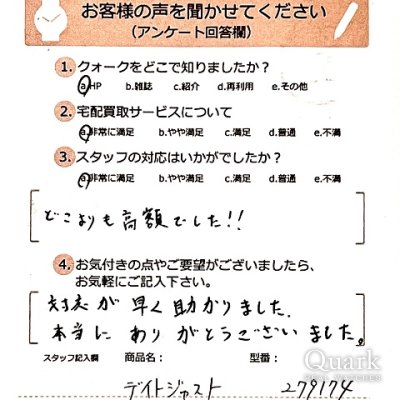 お客様の声を聞かせてください
（アンケート回答欄）
1. クォークをどこで知りましたか？
a.HP b.雑誌 c.紹介 d.再利用 e.その他
2. 宅配買取サービスについて
a.非常に満足 b.やや満足 c.満足 d.普通 e.不満
3. スタッフの対応はいかがでしたか？
a.非常に満足 b.やや満足 c.満足 d.普通 e.不満
どこよりも高額でした!!
4. お気付きの点やご要望がございましたら、
お気軽にご記入下さい。
対応が早く助かりました.
本当にありがとうございました。
スタッフ記入欄 商品名： 型番：
デイトジャスト 279174
Quark